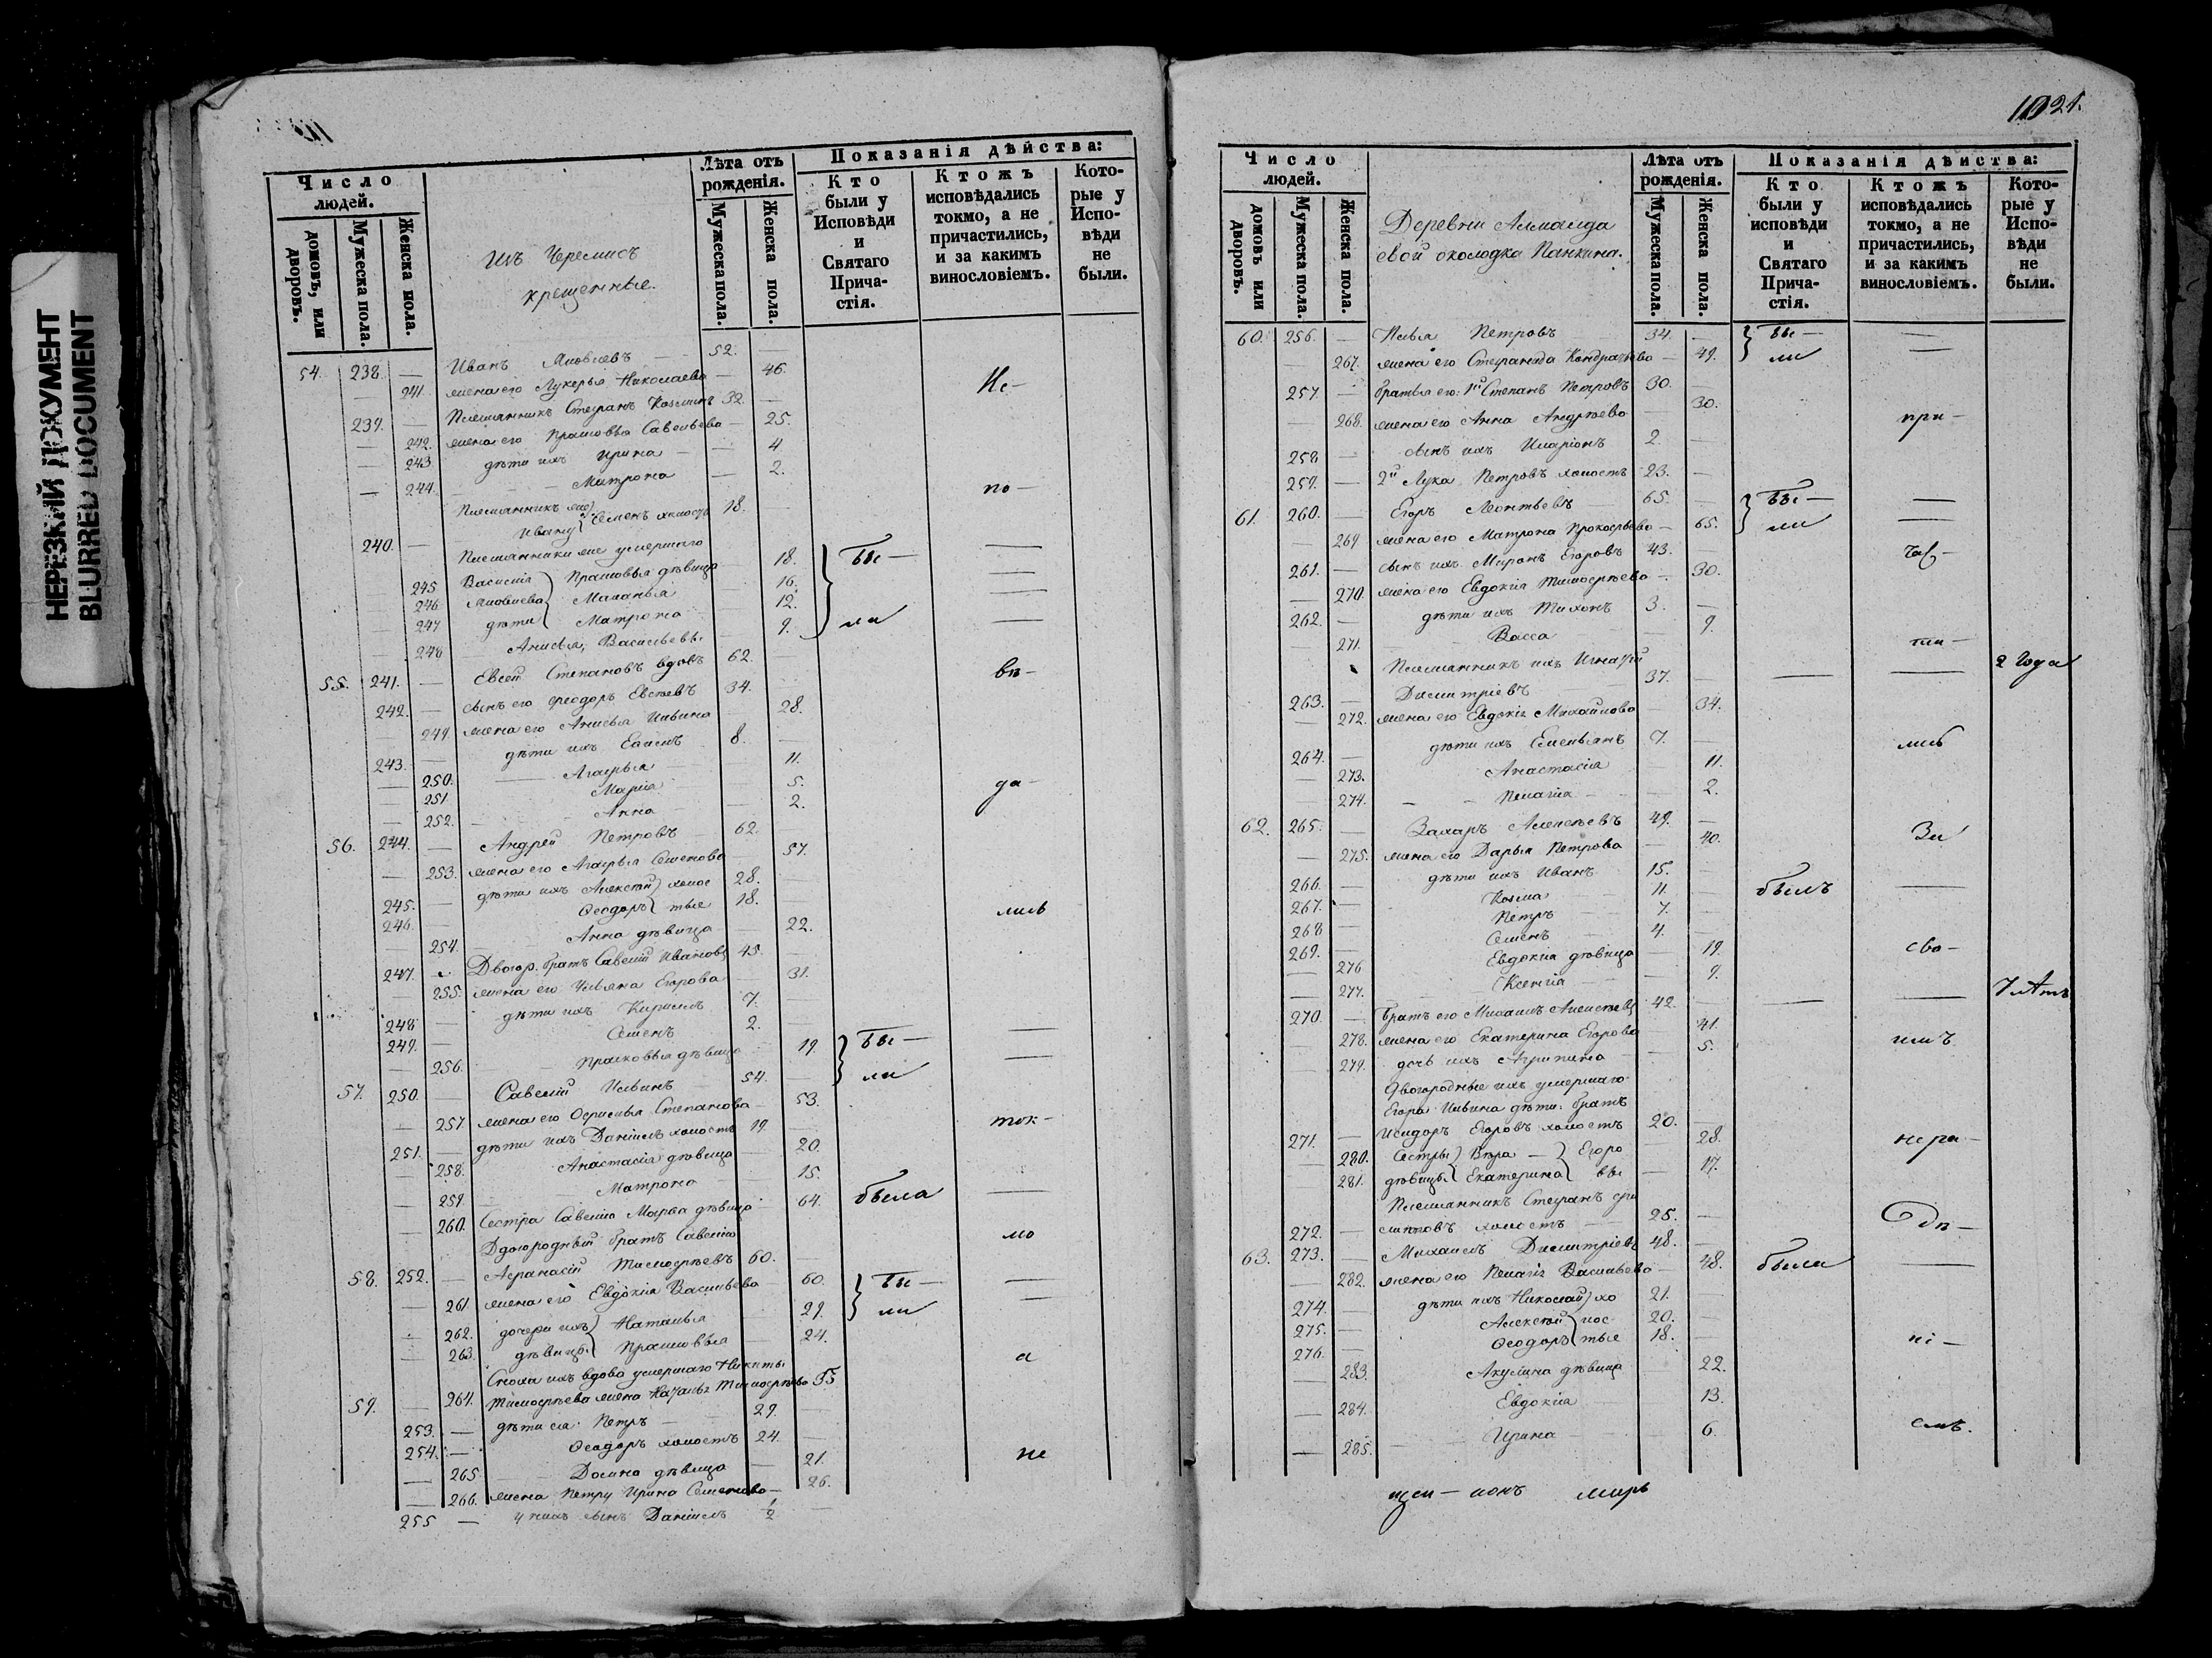 НЕРЕЗКИЙ ДОКУМЕНТ
BLURRED DOCUMENT
Число людей.
домовъ, или дворовъ.
Мужеска пола.
Женска пола.
Изъ Черемисъ
крещенные.
Лѣта отъ рожденія.
Мужеска пола.
Женска пола.
Показанія дѣйства:
Кто были у Исповѣди и Святаго Прича-стія.
Ктожъ исповѣдались токмо, а не причастились, и за какимъ винословіемъ.
Кото-рые у Испо-вѣди не были.
54. 238. — Иванъ Яковлевъ — 52. —
— 241. жена его Лукерья Николаева — 46. Не-
239. — Племянникъ Стефанъ Козминъ 32. —
— 242. жена его Прасковья Савельева — 25.
— 243. дѣти ихъ Ирина — 4
— 244. Матрона — 2.
по-
Племянникъ же
240. — Ивану Семенъ холостъ 18.
Племянники же умершаго
245 Василія Прасковья дѣвица 18. Бы — —
246 Яковлева Маланья 16. —
247 дѣти Матрона 12. —
248 Анисья, Васильевы 9. ли —
55. 241. — Евсей Степановъ вдовъ 62. вѣ-
242. — сынъ его Феодоръ Евсѣевъ 34. —
— 249 жена его Анисья Ильина 28.
243. — дѣти ихъ 8. —
— 250. Агафья 11.
— 251 Марія 5. да-
— 252. Анна — 2.
56. 244. — Андрей Петровъ — 62. —
— 253. жена его Агафья Семенова 57.
245. — дѣти ихъ Алексѣй холос 28. —
246. Ѳеодоръ тые 18. лись
254. Анна дѣвица 22.
247. — Двоюр. братъ Савелій Ивановъ 45.
— 255. жена его Ульяна Егорова — 31.
248 — дѣти ихъ Кириллъ 7.
249. — Семенъ 2.
— 256. Прасковья дѣвица 19. Бы — —
57. 250. — Савелій Ильинъ 54. — ли —
— 257 жена его Степанова 53.
251. — дѣти ихъ Даніилъ холостъ 19. — ток-
— 258. Анастасія дѣвица 20.
— 259. Матрона — 15.
— 260. Сестра Савелію Марѳа дѣвица 64. была —
Двоюродный братъ Савелію
58. 252. — Аѳанасій Тимоѳѣевъ 60. — мо
— 261 жена его Евдокія Васильева 60. Бы — —
— 262. дочери ихъ Наталья 29. ли —
— 263. дѣвицы Прасковья 24.
Сноха ихъ вдова умершаго Никиты а
59. — 264. Тимоѳѣева жена Тимоѳѣева 55
253. — дѣти ея: Петръ 29.
254. — Ѳеодоръ холостъ 24.
— 265 Домна дѣвица — 21. не
— 266. жена Петру Ирина Семенова — 26.
255 — у нихъ сынъ Даніилъ 1/2 —
1021.
Число людей.
домовъ или дворовъ.
Мужеска пола.
Женска пола.
Деревни Алманда
евой околодка Панкина.
Лѣта отъ рожденія.
Мужеска пола.
Женска пола.
Показанія дѣйства:
Кто были у исповѣди и Святаго Прича-стія.
Ктожъ исповѣдались токмо, а не причастились, и за какимъ винословіемъ.
Кото-рые у Испо-вѣди не были.
60. 256. — Илья Петровъ 34. — Бы — —
— 267. жена его Стефанида Кондратьева — 49. ли —
257. — братья его: 1й Степанъ Петровъ 30. —
— 268. жена его Анна Андрѣева — 30. при-
258 — сынъ ихъ Иларіонъ 2. —
259. — 2й Лука Петровъ холостъ 23. —
61. 260. — Егоръ Леонтьевъ 65. — Бы — —
— 269 жена его Матрона Прокофьева — 65. ли —
261. — сынъ ихъ Миронъ Егоровъ 43. — час-
— 270. жена его Евдокія Тимоѳѣева — 30.
262. — дѣти ихъ Тихонъ 3. —
— 271. Васса 9. ти-
Племянникъ ихъ Игнатій 2 года
263. — Димитріевъ 37. — — —
— 272. жена его Евдокія Михайлова 34.
264. — дѣти ихъ Емельянъ 7. — лись
— 273. Анастасія 11.
— 274. Пелагія 2.
62. 265. — Захаръ Алексѣевъ 49. —
— 275. жена его Дарья Петрова — 40. За
266. — дѣти ихъ Иванъ 15. —
267. — Козма 11. — былъ —
268 — Петръ 7. —
269. — Семенъ 4. —
— 276 Евдокія дѣвица 19. сво-
— 277. Ксенія 9.
270 — братъ его Михаилъ Алексѣевъ 42. — — — 7 лѣтъ
— 278. жена его Екатерина Егорова 41.
— 279. дочь ихъ Агрипина — 5. имъ
Двоюродные ихъ умершаго
Егора Ильина дѣти: братъ
271. — Исидоръ Егоровъ холостъ 20. —
— 280. Сестры Вѣра — Егоро 28. нера-
— 281. дѣвицы Екатерина вы — 17.
Племянникъ Стефанъ Фи
272. — липповъ холостъ 25. — дѣ-
63. 273. — Михаилъ Димитріевъ 48. —
— 282. жена его Пелагія Васильева — 48. были —
274. — дѣти ихъ Николай хо 21. —
275. — Алексѣй лос 20. —
276. — Ѳеодоръ тые 18. — ні-
— 283. Акулина дѣвица 22.
— 284. Евдокія 13.
— 285. Ирина — 6. емъ.